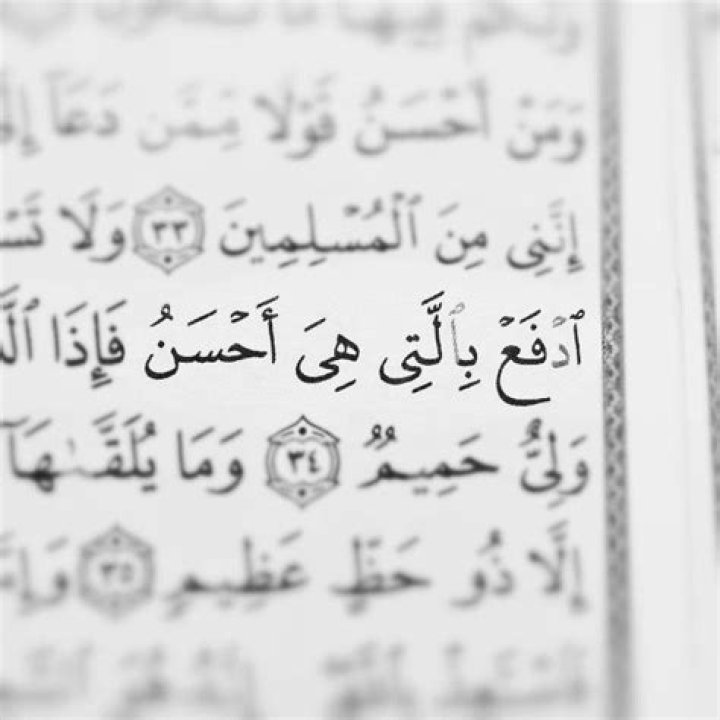 وَمَنْ أَحْسَنُ قَوْلًا مِّمَّن دَعَآ إِلَى
إِنَّنِى مِنَ ٱلْمُسْلِمِينَ ٣٣ وَلَا
ٱدْفَعْ بِٱلَّتِى هِىَ أَحْسَنُ فَإِذَا
وَلِىٌّ حَمِيمٌ ٣٤ وَمَا يُلَقَّىٰهَآ
إِلَّا ذُو حَظٍّ عَظِيمٍ ٣٥
فَٱسْتَعِذْ بِٱللَّهِ إِنَّهُۥ هُوَ